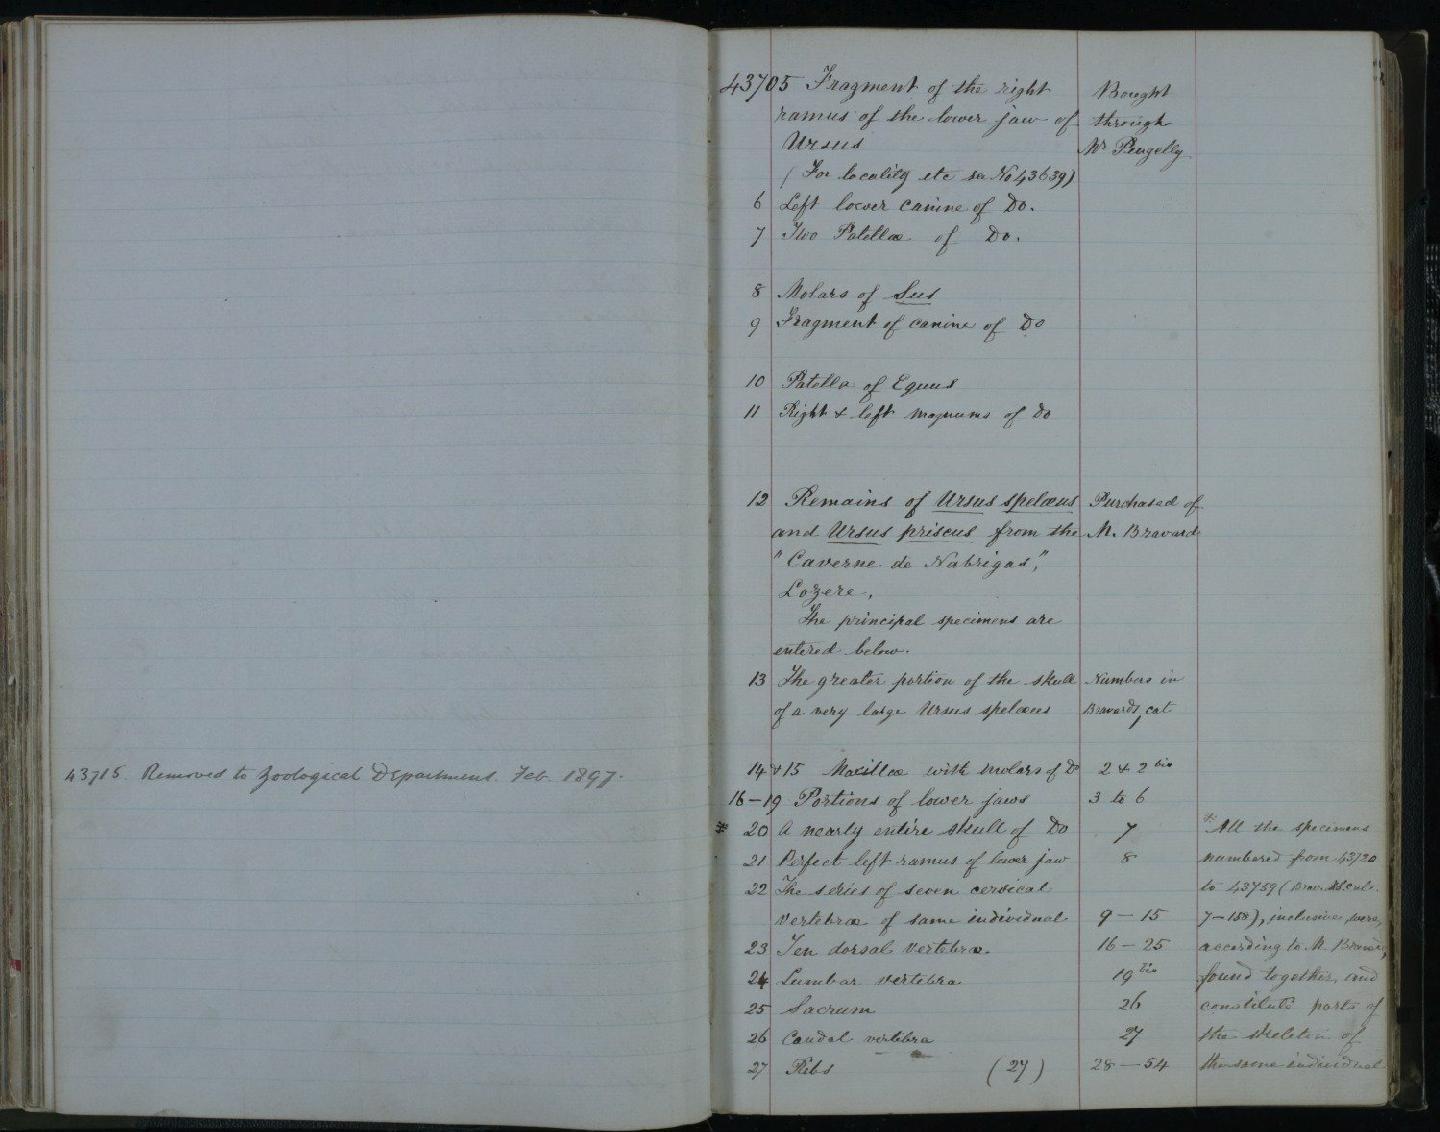 43715. Removed to Zoological Department. Feb. 1897.
43705 Fragment of the right Bought
ramus of the lower jaw of through
Ursus Mr Pengelly
(For locality etc see No 43639)
6 Left lower canine of Do.
7 Two Patellæ of Do.
8 Molars of Sus
9 Fragment of canine of Do
10 Patella of Equus
11 Right & left magnums of Do
12 Remains of Ursus spelæus Purchased of
and Ursus priscus from the M. Bravard
"Caverne de Nabrigas",
Lozere,
The principal specimens are
entered below.
13 The greater portion of the skull Numbers in
of a very large Ursus spelæus Bravard's cat
14 & 15 Maxillæ with molars of Do 2 & 2 bis
16-19 Portions of lower jaws 3 to 6
* 20 A nearly entire skull of Do 7 * All the specimens
21 Perfect left ramus of lower jaw 8 numbered from 43720
22 The series of seven cervical to 43759 (
vertebræ of same individual 9-15 7-158), inclusive, were,
23 Ten dorsal vertebræ. 16-25 according to M. Bravard,
24 Lumbar vertebra 19 bis found together, and
25 Sacrum 26 constitute parts of
26 Caudal vertebra 27 the skeleton of
27 Ribs (27) 28-54 the same individual